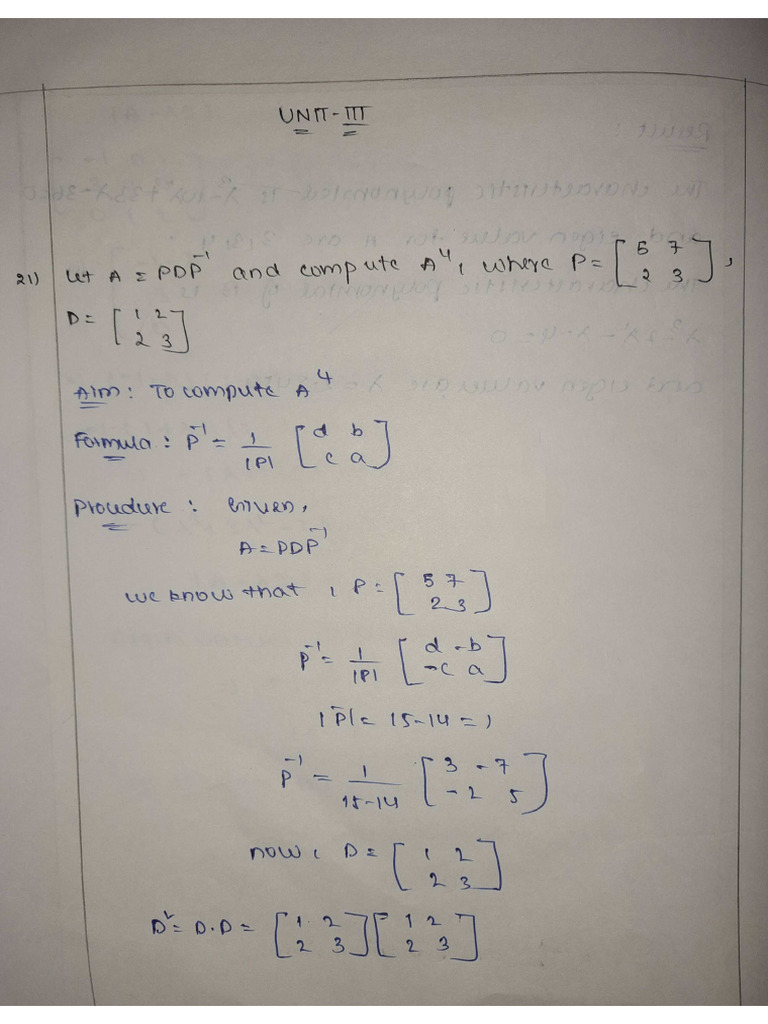 UNIT-III
21) Let A = PDP⁻¹ and compute A⁴, where P = [5 7; 2 3],
D = [1 2; 2 3]
Aim: To compute A⁴
Formula: P⁻¹ = 1/|P| [d b; c a]
Proudure: Given,
A = PDP⁻¹
we know that, P = [5 7; 2 3]
P⁻¹ = 1/|P| [d -b; -c a]
|P| = 15-14 = 1
P⁻¹ = 1/15-14 [3 -7; -2 5]
now, D = [1 2; 2 3]
D² = D.D = [1 2; 2 3] [1 2; 2 3]